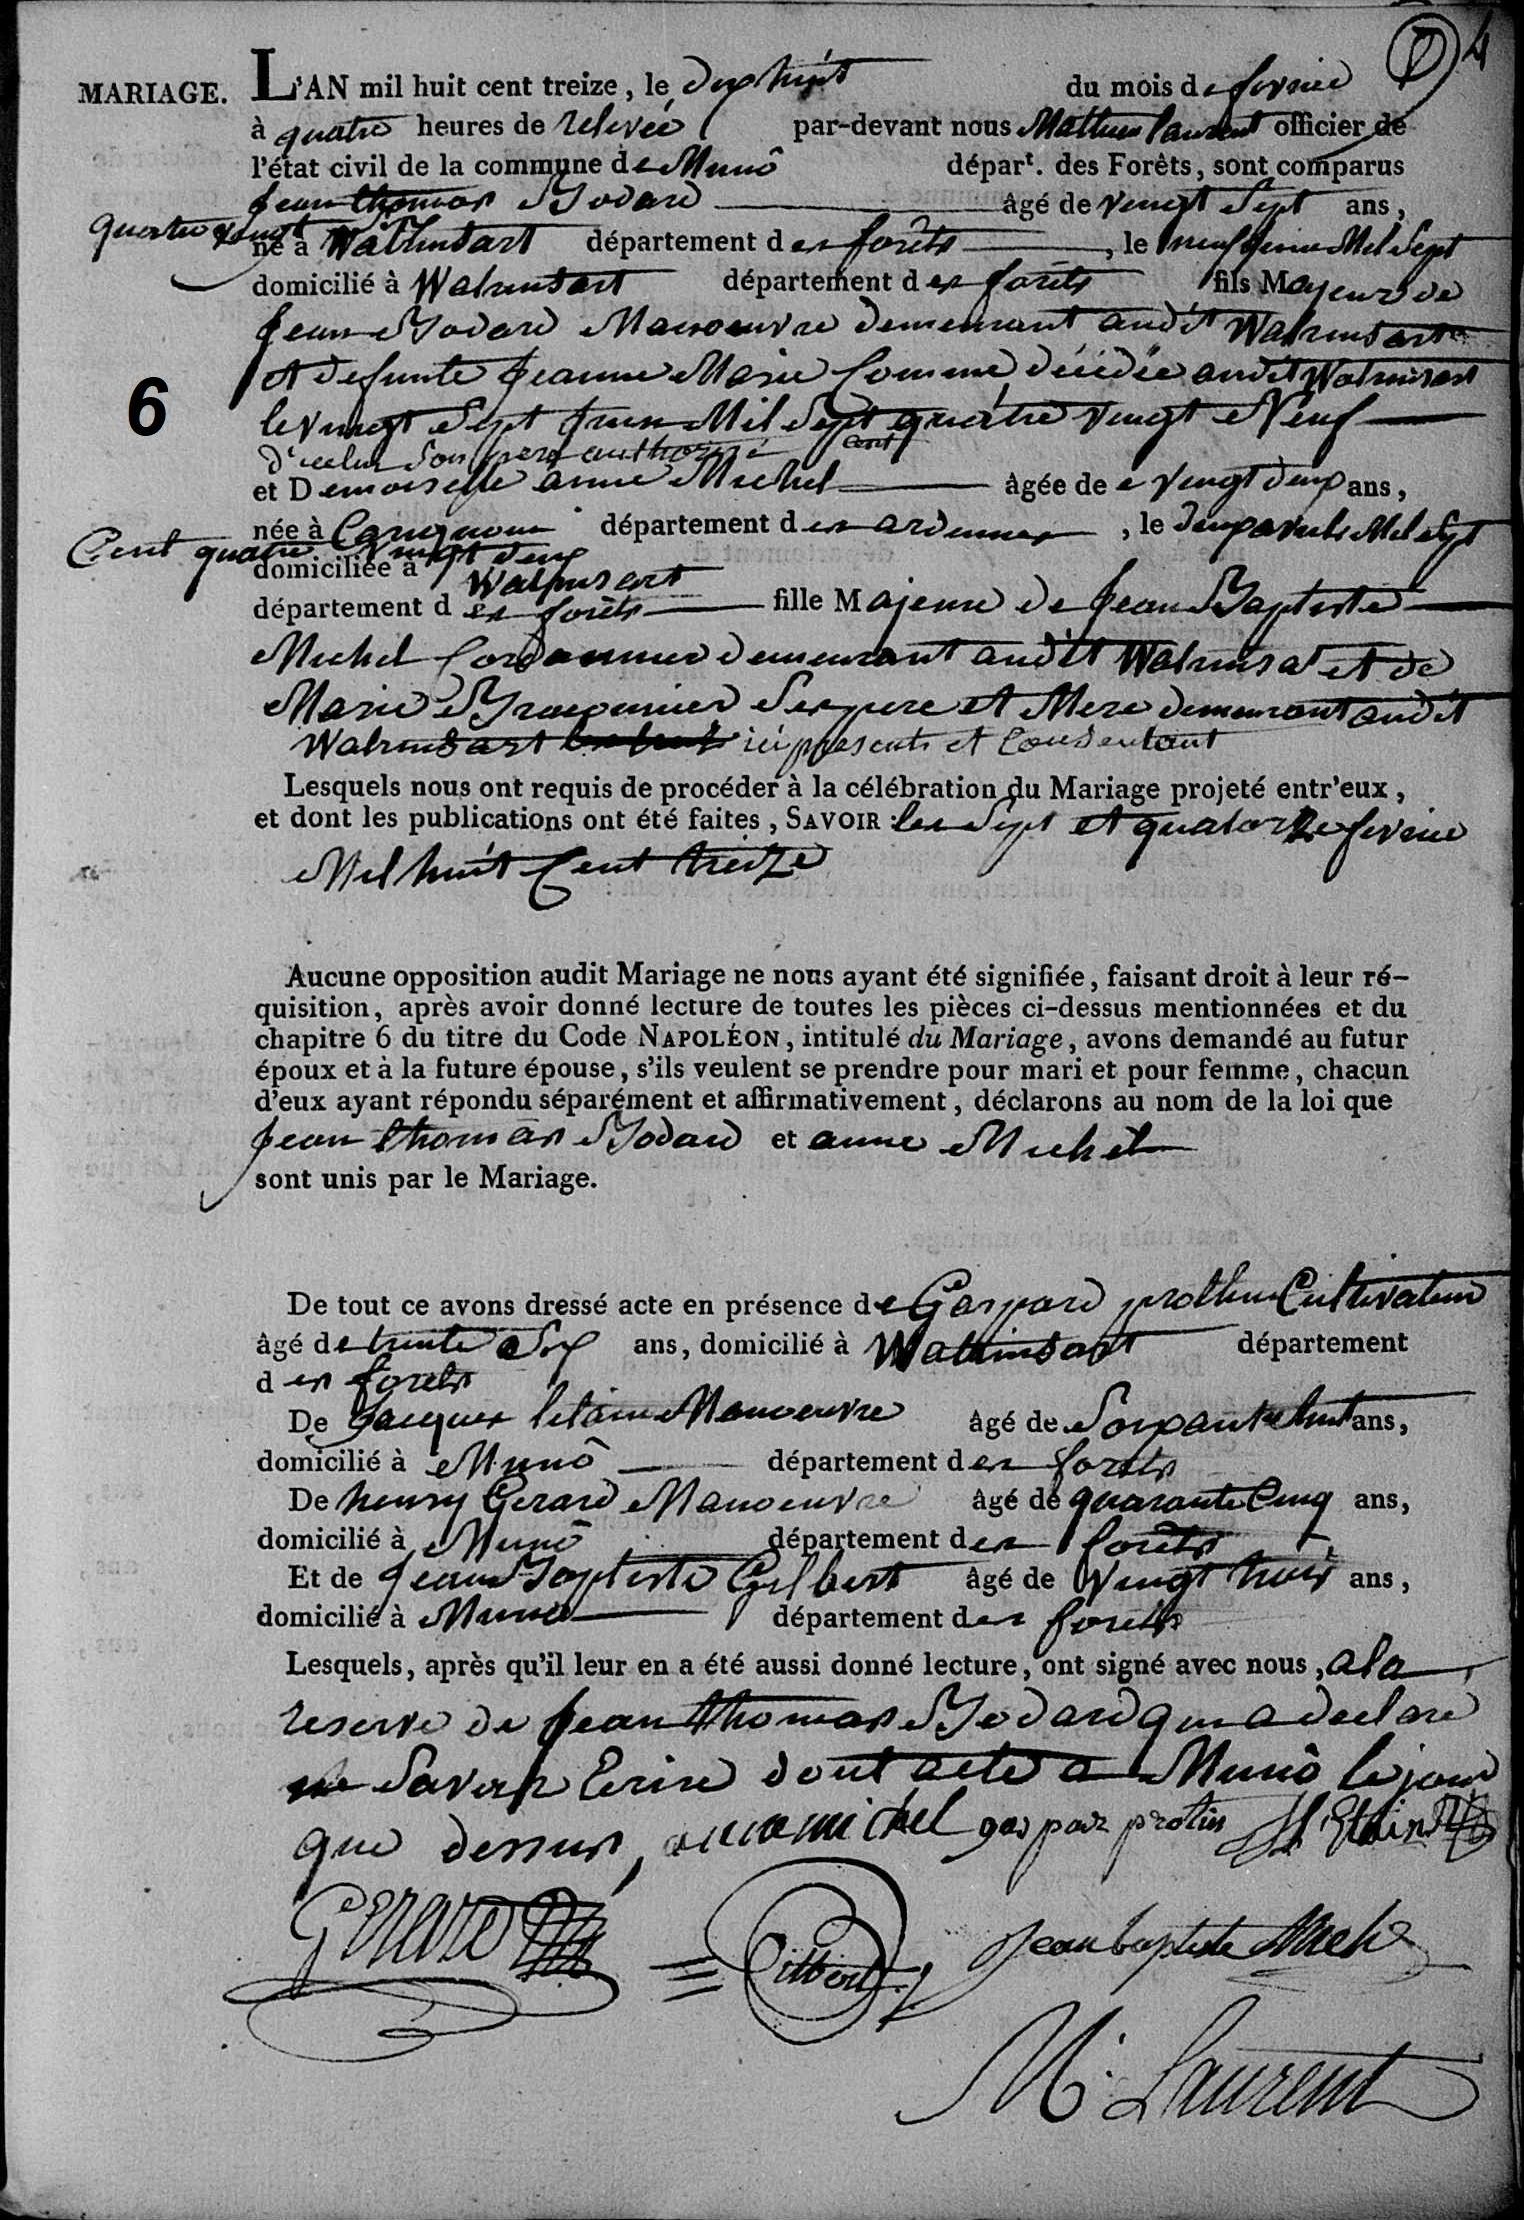 4
MARIAGE. L'AN mil huit cent treize, le dix huit du mois de fevrier
à quatre heures de relevée par-devant nous Mathieu Laurent officier de
l'état civil de la commune de Munô départ. des Forêts, sont comparus
Jean thomas Bodard âgé de vingt Sept ans,
né à Watrinsart département des forêts, le neuf Mil Sept
quatre vingt
domicilié à Watrinsart département des forêts fils Majeur de
Jean Bodard Manoeuvre demeurant audit Watrinsart
et defunte Jeanne Marie décédée audit Watrinsart
le vingt Sept Juin Mil Sept cent quatre vingt Neuf
d'icelui Son pere authorisé
et Demoiselle anne Michel âgée de vingt deux ans,
née à Carignan département des ardennes, le Mil Sept
Cent quatre vingt deux
domiciliée à Watrinsart
département des forêts fille Majeure de Jean Baptiste
Michel Cordonnier demeurant audit Watrinsat et de
Marie Ses pere et Mere demeurant audit
Watrinsart ici presents et Consentant
Lesquels nous ont requis de procéder à la célébration du Mariage projeté entr'eux,
et dont les publications ont été faites, SAVOIR : les Sept et quatorze fevrier
Mil huit Cent treize
6
Aucune opposition audit Mariage ne nous ayant été signifiée, faisant droit à leur ré-
quisition, après avoir donné lecture de toutes les pièces ci-dessus mentionnées et du
chapitre 6 du titre du Code NAPOLÉON, intitulé du Mariage, avons demandé au futur
époux et à la future épouse, s'ils veulent se prendre pour mari et pour femme, chacun
d'eux ayant répondu séparément et affirmativement, déclarons au nom de la loi que
Jean thomas Bodard et anne Michel
sont unis par le Mariage.
De tout ce avons dressé acte en présence de Gaspard prottin Cultivateur
âgé de trente Six ans, domicilié à Watrinsart département
des forêts
De Jacques letaine Manoeuvre âgé de Soixante huit ans,
domicilié à Munô département des forêts
De henry Gerard Manoeuvre âgé de quarante Cinq ans,
domicilié à Munô département des forêts
Et de Jean Baptiste Gilbert âgé de Vingt trois ans,
domicilié à Muno département des forêts
Lesquels, après qu'il leur en a été aussi donné lecture, ont signé avec nous, a la
reserve de Jean thomas Bodard qui a declaré
ne Savoir Ecrire dont acte a Munô le jour
que dessus, anne michel gaspar protin
Gerard Gilbert Jean baptiste
M. Laurent